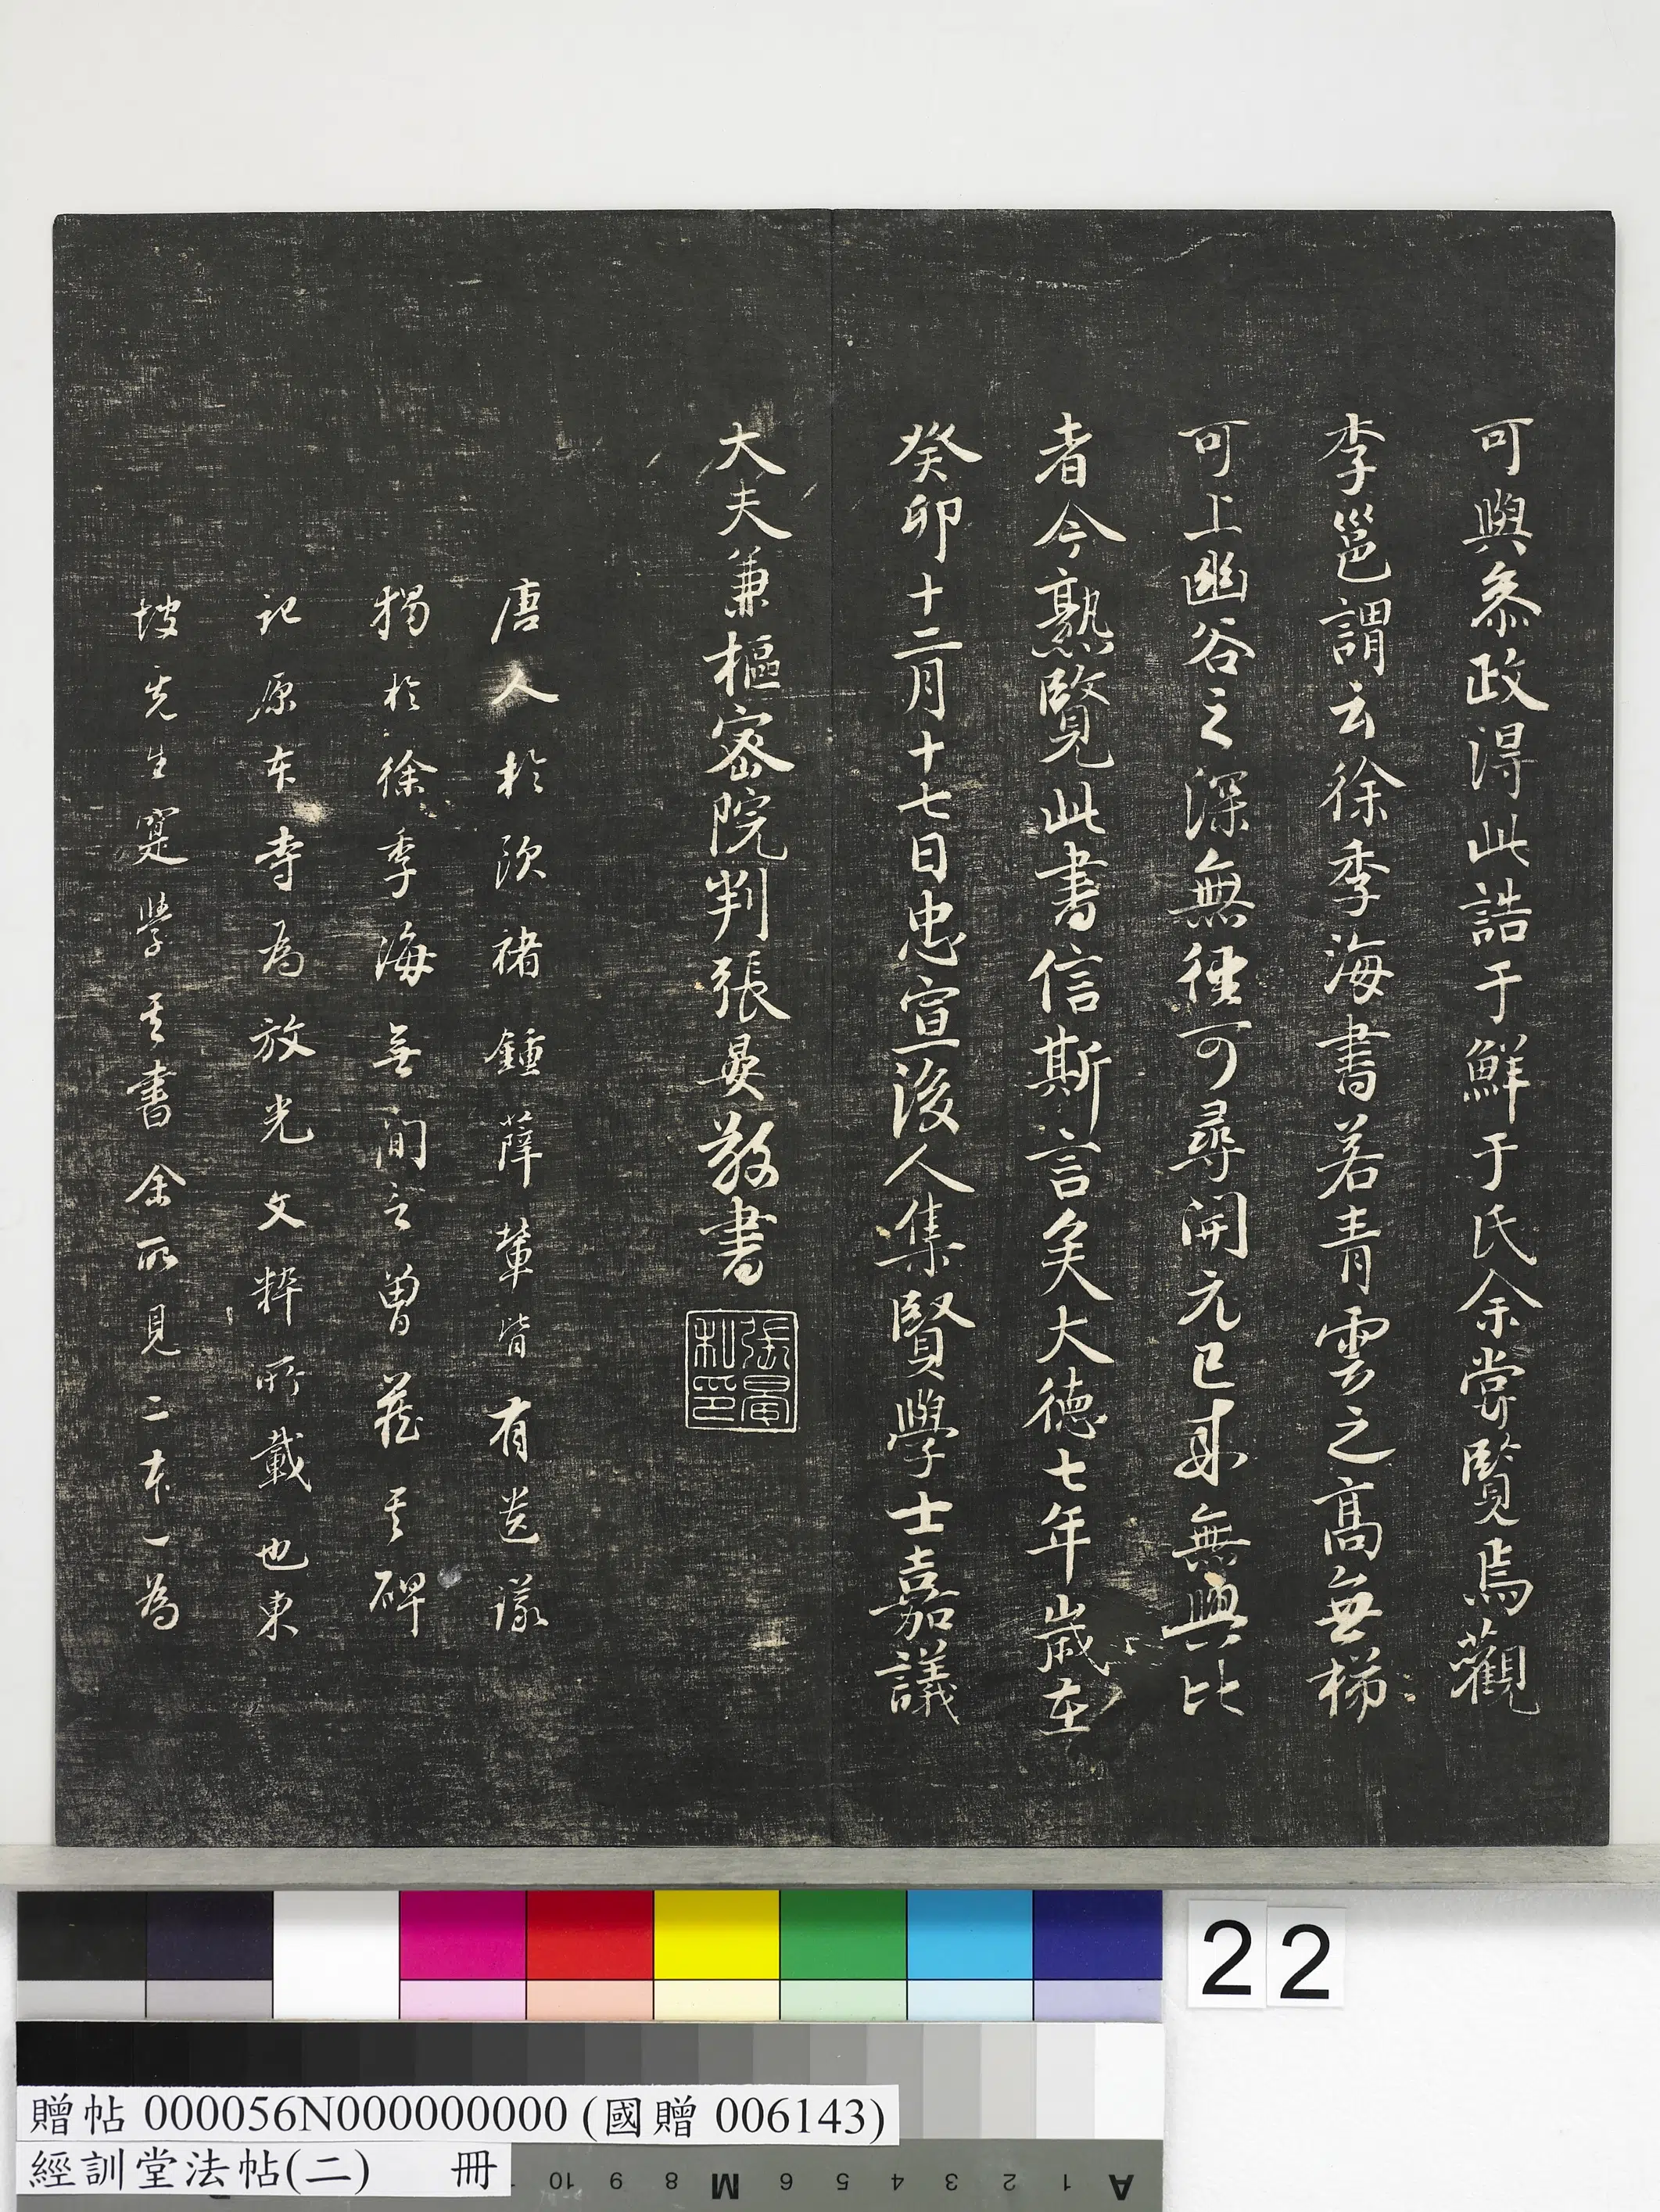 可與叅政淂此誥于鮮于氏余甞覧焉觀
李邕謂云徐季海書若青雲之髙無梯
可上幽谷之深無徑可尋開元已来無與比
者今熟覧此書信斯言矣大德七年歳在
癸卯十二月十七日忠宣後人集賢學士嘉議
大夫兼樞密院判張晏敬書
張晏私印
唐人於欧褚鍾薛輩皆有遺議
獨於徐季海無間言曽蔵其碑
記原本寺為放光文粹所載也東
坡先生寔學其書余所見二本一為
22
贈帖 000056N000000000 (國贈 006143)
經訓堂法帖(二) 冊
10 9 8 M 6 5 4 3 2 1 A